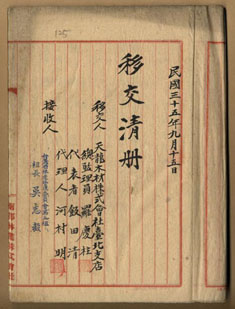 民國三十五年九月十五日
移交清册
移交人
天龍木材株式會社臺北支店
總監理員 羅慶柱
代表者 飯田清
代理人 河村明
接收人
組長 吳志毅
125